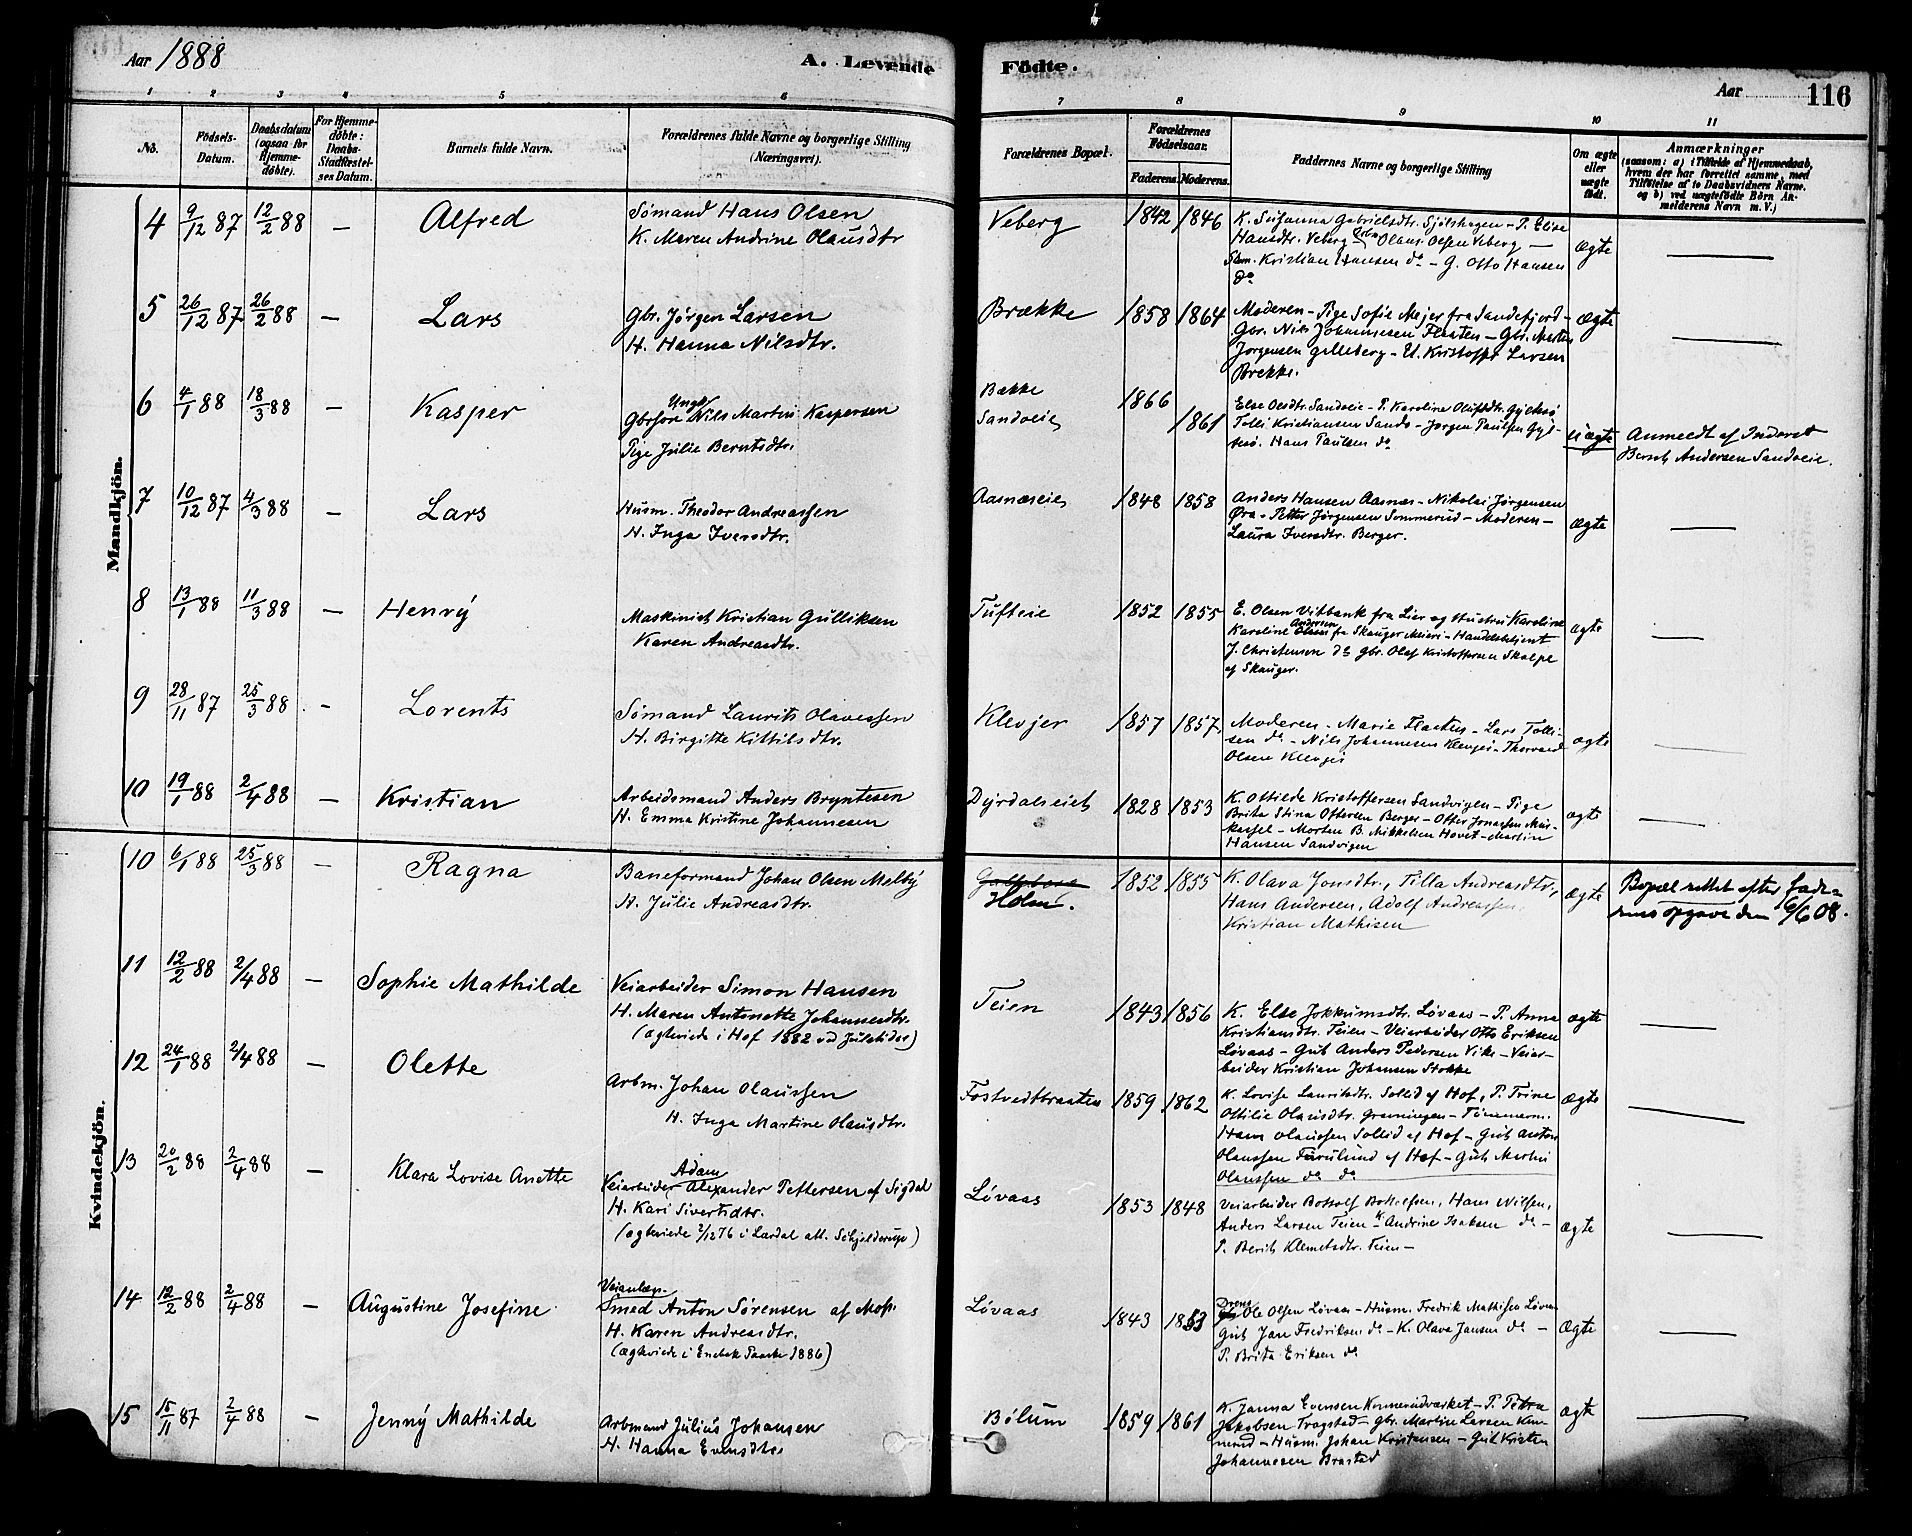 Aar 1888
A. Levende Födte.
Aar 116
1 2 3 4 5 6 7 8 9 10 11
No. Födsels-Datum. Daabsdatum (ogsaa for Hjemmedöbte). For Hjemmedöbte: Daabs-Stadfæstelses Datum. Barnets fulde Navn. Forældrenes fulde Navne og borgerlige Stilling (Næringsvei).
Forældrenes Bopæl. Forældrenes Födselsaar. Faderens. Moderens. Faddernes Navne og borgerlige Stilling Om ægte eller uægte födt. Anmærkninger (saasom: a) i Tilfælde af Hjemmedaab, hvem der har forrettet samme, med Tilföielse af to Daabsvidners Navne. og b) ved uægtefödte Börn Anmelderens Navn m. V.)
Mandkjön.
4 9/12 87 12/2 88 — Alfred
Sømand Hans Olsen
K. Maren Andrine Olausdtr
Veberg 1842 1846
K. Susanna Gabrielsdtr. Sjølshagen - P. Elise
Hansdtr. Veberg Arbm Olaus Olsen Veberg —
Søm. Kristian Hansen do - G. Otto Hansen
do
ægte —
5 26/12 87 26/2 88 — Lars
Gbr. Jørgen Larsen
H. Hanna Nilsdtr.
Brække 1858 1864
Moderen - Pige Sofie Mejer fra Sandefjord -
Gbr. Nils Johannesen Flaaten - Gbr. Martin
Jørgensen Galleberg - U. Kristoffer Larsen
Brekke.
ægte —
6 4/1 88 18/3 88 — Kasper
Ungk
Gbrsøn Nils Martin Kaspersen
Pige Julie Berntsdtr.
Bække
Sandveie 1866 1861
Else Olsdtr. Sandeie - P. Karoline Olufsdtr.
Tolli Kristiansen Sands - Jørgen Paulsen
Hans Paulsen do
uægte
Anmeldt af Inderst
Bernt Andersen Sandveie.
7 10/12 87 4/3 88 — Lars
Husm. Theodor Andreassen
H. Inga Iversdtr.
Aasnæseie 1848 1858
Anders Hansen Aasnæs - Nikolai Jørgensen
Øra - Petter Jørgensen Sommerud - Moderen -
Laura Iversdtr. Berger.
ægte —
8 13/1 88 11/3 88 — Henrÿ
Maskinist Kristian Gulliksen
Karen Andreasdtr.
Tufteie 1852 1855
E. Olsen Vitbank fra Lier og Hustru Karoline
Andersen
Karoline Olsen fra Skauger Meieri - Handelsbetjent
J. Christensen do Gbr. Olaf Kristoffersen Skalpe
af Skauger.
ægte —
9 28/11 87 25/3 88 - Lorents
Sømand Laurits Olavessen
H. Birgitte Kittilsdtr.
Klevjer 1857 1857
Moderen - Marie Flaaten - Lars Tolli-
sen do - Nils Johannesen Klevjer - Thorvald
Olsen Klevjer
ægte —
10 19/1 88 2/4 88 — Kristian
Arbeidsmand Anders Bryntesen
H. Emma Kristine Johannesen
Dÿrdalseiet 1828 1853
K. Ottilde Kristoffersen Sandvigen - Pige
Brita Stina Ottersen Berger - Otter Jonassen
Morten B. Mikkelsen Hovet - Martin
Hansen Sandvigen
ægte —
Kvindekjön.
10 6/1 88 25/3 88 — Ragna
Baneformand Johan Olsen Melbÿ
H. Julie Andreasdtr.
Galleberg
Holm. 1852 1855
K. Olava Jonsdtr., Tilla Andreasdtr.,
Hans Andersen, Adolf Andreassen,
Kristian Mathisen
ægte
Bopæl rettet efter fade-
rens opgave den 6/6 08.
11 12/2 88 2/4 88 — Sophie Mathilde
Veiarbeider Simon Hansen
H. Maren Antonette Johannesdtr.
(ægteviede i Hof 1882 ved Juletider)
Teien 1843 1856
K. Else Jokkumsdtr. Løvaas - P. Anna
Kristiansdtr. Teien - Veiarbeider Otto Eriksen
Løvaas - Gutt Anders Pedersen Vike - Veiar-
beider Kristian Johansen Stokke
ægte —
12 24/1 88 2/4 88 — Olette
Arbm. Johan Olaussen
H. Inga Martine Olausdtr.
Fostvedtbraaten 1859 1862
K. Lovise Lauritsdtr. Sollid af Hof, P. Trine
Ottilie Olausdtr. Grønningen - Tømmerm.
Hans Olaussen Sollid af Hof - Gut Anton
Olaussen Furulund af Hof - Gut Martin
Olaussen do do
ægte —
13 20/2 88 2/4 88 — Klara Lovise Anette
Adam
Veiarbeider Alexander Pettersen af Sigdal
H. Kari Sivertsdtr.
(ægteviede 2/12 76 i Lardal att. Schjelderup)
Løvaas 1853 1848
Veiarbeider Bottolf Bottolfsen, Hans Nilsen,
Anders Larsen Teien K. Andrine Isaksen do -
P. Berit Klemetsdtr. Teien -
ægte —
14 12/2 88 2/4 88 — Augustine Josefine
Veianlæg.
Smed Anton Sørensen af Moss
H. Karen Andreasdtr.
(ægteviede i Enebak Paaske 1886)
Løvaas 1843 1853
Dreng
Ole Olsen Løvaas - Husm. Fredrik Mathisen Løvaas
Gut Jan Fredriksen do - K. Olava Jansen do -
P. Brita Eriksen do
ægte —
15 15/11 87 2/4 88 — Jennÿ Mathilde
Arbmand Julius Johansen
H. Hanna Evensdtr.
Bølum 1859 1861
K. Janna Evensen Konnerudverket - P. Petra
Jakobsen Trogstad - Gbr. Martin Larsen Kon-
nerud - Husm. Johan Kristensen - Gut Kristen
Johannesen Brastad
ægte —